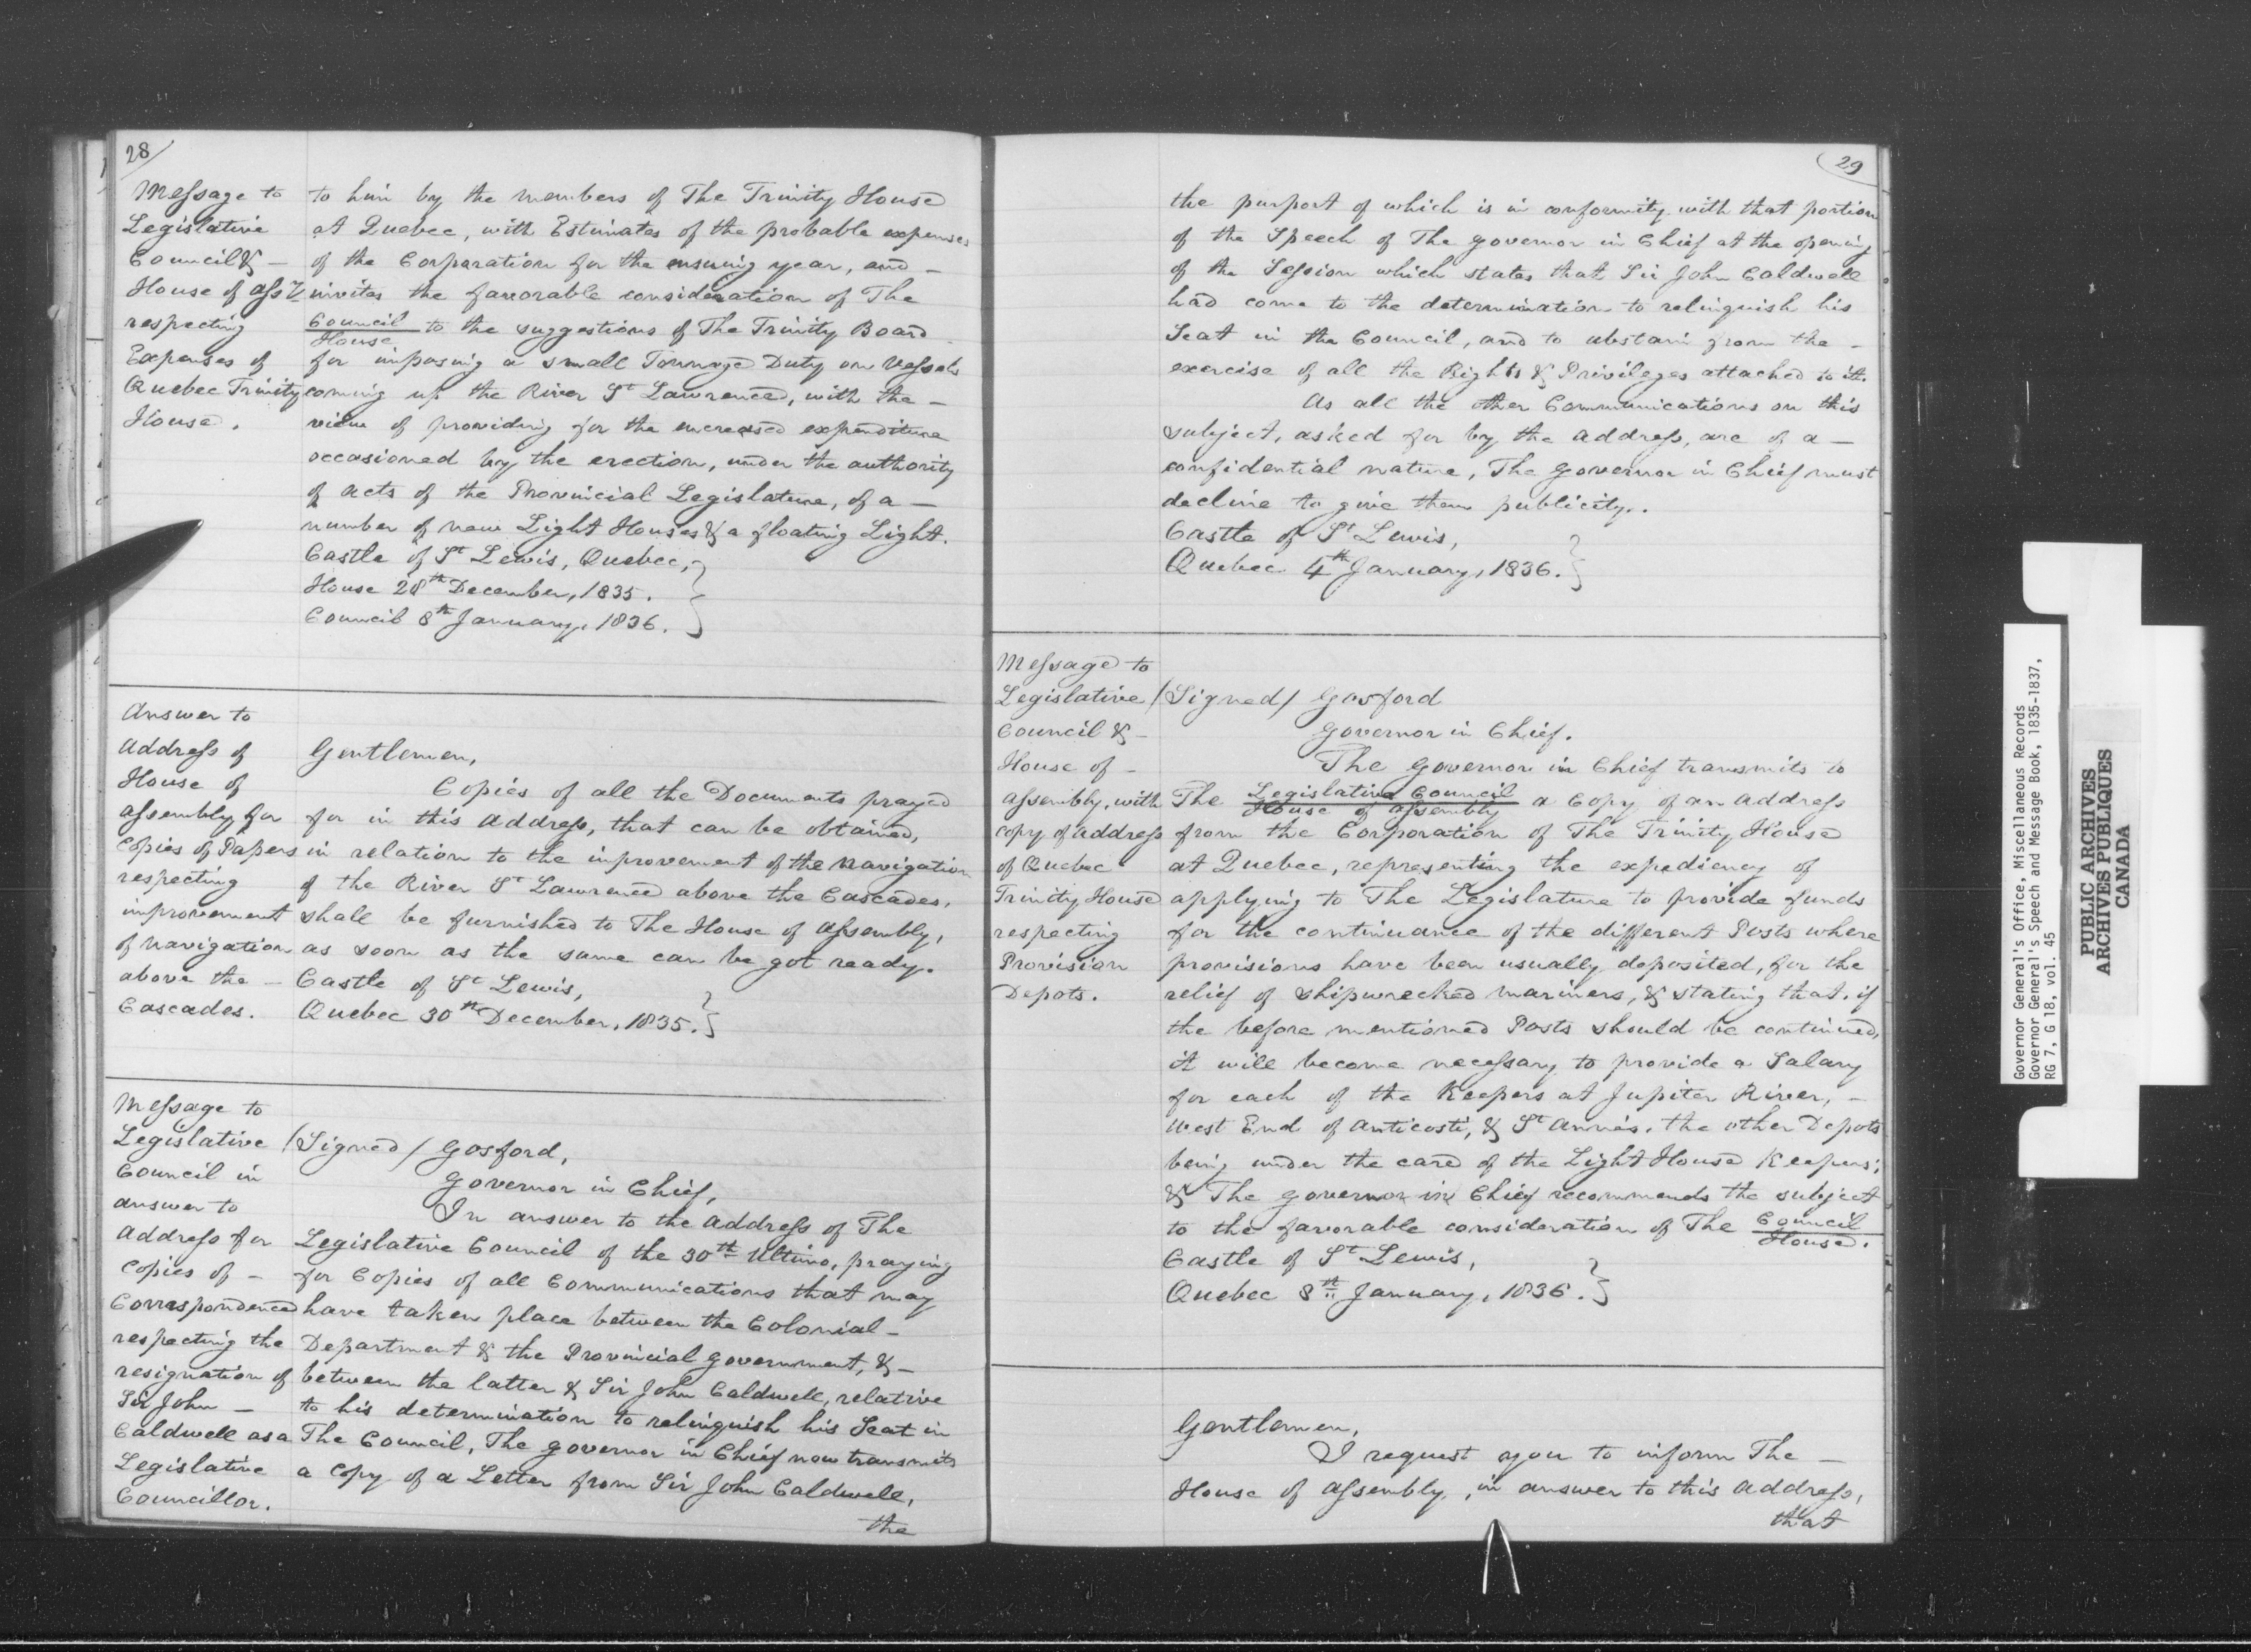 28
Message to
Legislative
Council &
House of Assy
respecting
Expenses of
Quebec Trinity
House.
to him by the members of The Trinity House
at Quebec, with Estimates of the probable expenses
of the Corporation for the ensuing year, and -
invites the favorable consideration of The
Council
House
to the suggestions of The Trinity Board
for imposing a small Tonnage Duty on Vessels
coming up the River St Lawrence, with the -
view of providing for the encreased expenditure
occasioned by the erection, under the authority
of acts of the Provincial Legislature, of a -
number of new Light Houses & a floating Light.
Castle of St Lewis, Quebec,
House 28th December, 1835.
Council 8th January, 1836.
Answer to
Address of
House of
Assembly for
Copies of Papers
respecting
improvement
of navigation
above the -
Cascades.
Gentlemen,
Copies of all the Documents prayed
for in this Address, that can be obtained,
in relation to the improvement of the navigation
of the River St Lawrence above the Cascades,
shall be furnished to The House of Assembly,
as soon as the same can be got ready.
Castle of St Lewis,
Quebec 30th December, 1835.
Message to
Legislative
Council in
answer to
Address for
Copies of -
Correspondence
respecting the
resignation of
Sir John -
Caldwell as a
Legislative
Councillor.
/Signed/ Gosford,
Governor in Chief,
In answer to the Address of The
Legislative Council of the 30th Ultimo, praying
for Copies of all Communications that may
have taken place between the Colonial -
Department & the Provincial Government, & -
between the latter & Sir John Caldwell, relative
to his determination to relinquish his Seat in
The Council, The Governor in Chief now transmits
a Copy of a Letter from Sir John Caldwell,
the
29
the purport of which is in conformity with that portion
of the Speech of The Governor in Chief at the opening
of the Session which states that Sir John Caldwell
had come to the determination to relinquish his
Seat in the Council, and to abstain from the -
exercise of all the Rights & Privileges attached to it.
As all the other Communications on this
subject, asked for by the Address, are of a -
confidential nature, The Governor in Chief must
decline to give them publicity.
Castle of St Lewis,
Quebec 4th January, 1836.
Message to
Legislative
Council & -
House of -
Assembly, with
copy of Address
of Quebec
Trinity House
respecting
Provision
Depots.
/Signed/ Gosford
Governor in Chief.
The Governor in Chief transmits to
The Legislative Council
House of Assembly
a Copy of an Address
from the Corporation of The Trinity House
at Quebec, representing the expediency of
applying to The Legislature to provide funds
for the continuance of the different Posts where
provisions have been usually deposited, for the
relief of shipwrecked mariners, & stating that, if
the before mentioned Posts should be continued,
it will become necessary to provide a Salary
for each of the Keepers at Jupiter River, -
West End of Anticosti, & St Anne's, the other Depots
being under the care of the Light House Keepers;
& The Governor in Chief recommends the subject
to the favorable consideration of The Council
House.
Castle of St Lewis,
Quebec 8th January, 1836.
Gentlemen,
I request you to inform The -
House of Assembly, in answer to this Address,
that
Governor General's Office, Miscellaneous Records
Governor General's Speech and Message Book, 1835-1837,
RG 7, G 18, vol. 45
PUBLIC ARCHIVES
ARCHIVES PUBLIQUES
CANADA